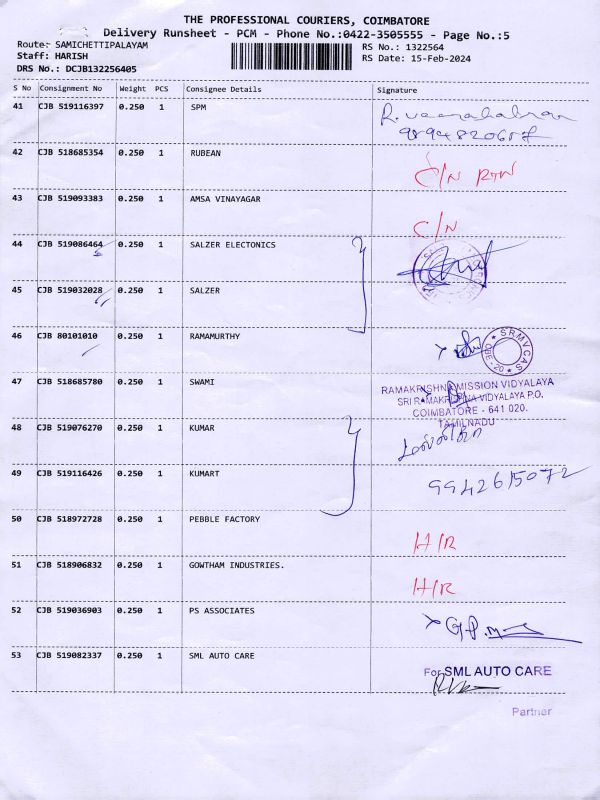 THE PROFESSIONAL COURIERS, COIMBATORE
Delivery Runsheet - PCM - Phone No.:0422-3505555 - Page No.:5
Route: SAMICHETTIPALAYAM
Staff: HARISH
DRS No.: DCJB132256405
RS No.: 1322564
RS Date: 15-Feb-2024
S No Consignment No Weight PCS Consignee Details Signature
41 CJB 519116397 0.250 1 SPM
9894820687
42 CJB 518685354 0.250 1 RUBEAN C/N RTN
43 CJB 519093383 0.250 1 AMSA VINAYAGAR C/N
44 CJB 519086464 0.250 1 SALZER ELECTONICS
45 CJB 519032028 0.250 1 SALZER
46 CJB 80101010 0.250 1 RAMAMURTHY
SRMVCAS
47 CJB 518685780 0.250 1 SWAMI
RAMAKRISHNA MISSION VIDYALAYA
SRI RAMAKRISHNA VIDYALAYA P.O.
COIMBATORE - 641 020.
TAMILNADU
48 CJB 519076270 0.250 1 KUMAR
49 CJB 519116426 0.250 1 KUMART 9942615072
50 CJB 518972728 0.250 1 PEBBLE FACTORY H/R
51 CJB 518906832 0.250 1 GOWTHAM INDUSTRIES. H/R
52 CJB 519036903 0.250 1 PS ASSOCIATES
53 CJB 519082337 0.250 1 SML AUTO CARE
For SML AUTO CARE
Partner